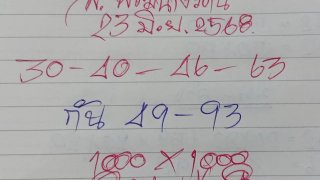 23 มิ.ย. 2568
30-40-46-63
กัน 49-93
1000 X 1000